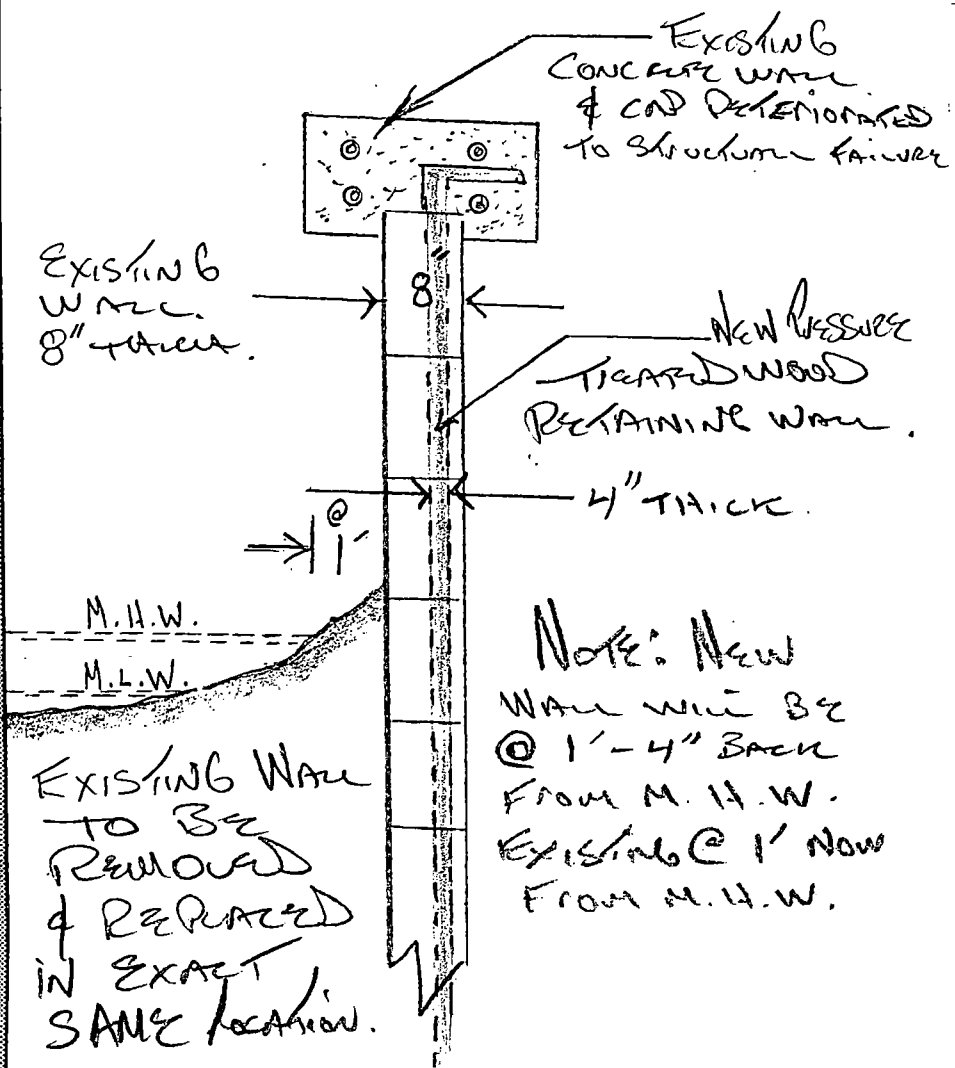 EXISTING
CONCRETE WALL
& CAP DETERIORATED
TO STRUCTUALL FAILURE
EXISTING
WALL.
8" THICK.
8"
NEW PRESSURE
TREATED WOOD
RETAINING WALL.
4" THICK.
@
1'
M.H.W.
M.L.W.
NOTE: NEW
WALL WILL BE
@ 1'-4" BACK
FROM M.H.W.
EXISTING @ 1' NOW
FROM M.H.W.
EXISTING WALL
TO BE
REMOVED
& REPLACED
IN EXACT
SAME LOCATION.